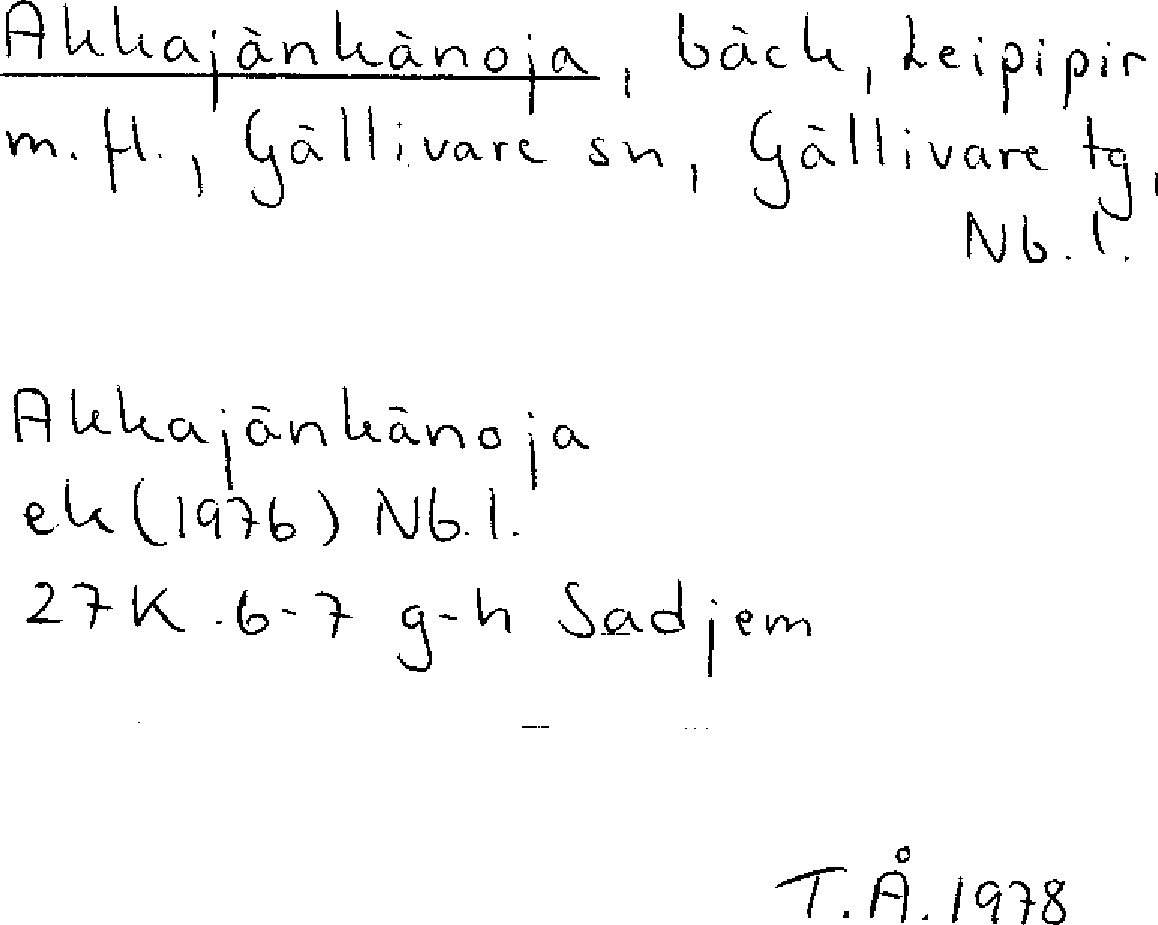 Akkajänkänoja, bäck, Leipipir
m.fl., Gällivare sn, Gällivare tg,
Nb.l.
Akkajänkänoja
ek (1976) Nb.l.
27K.6-7 g-h Sadjem
T.Å. 1978